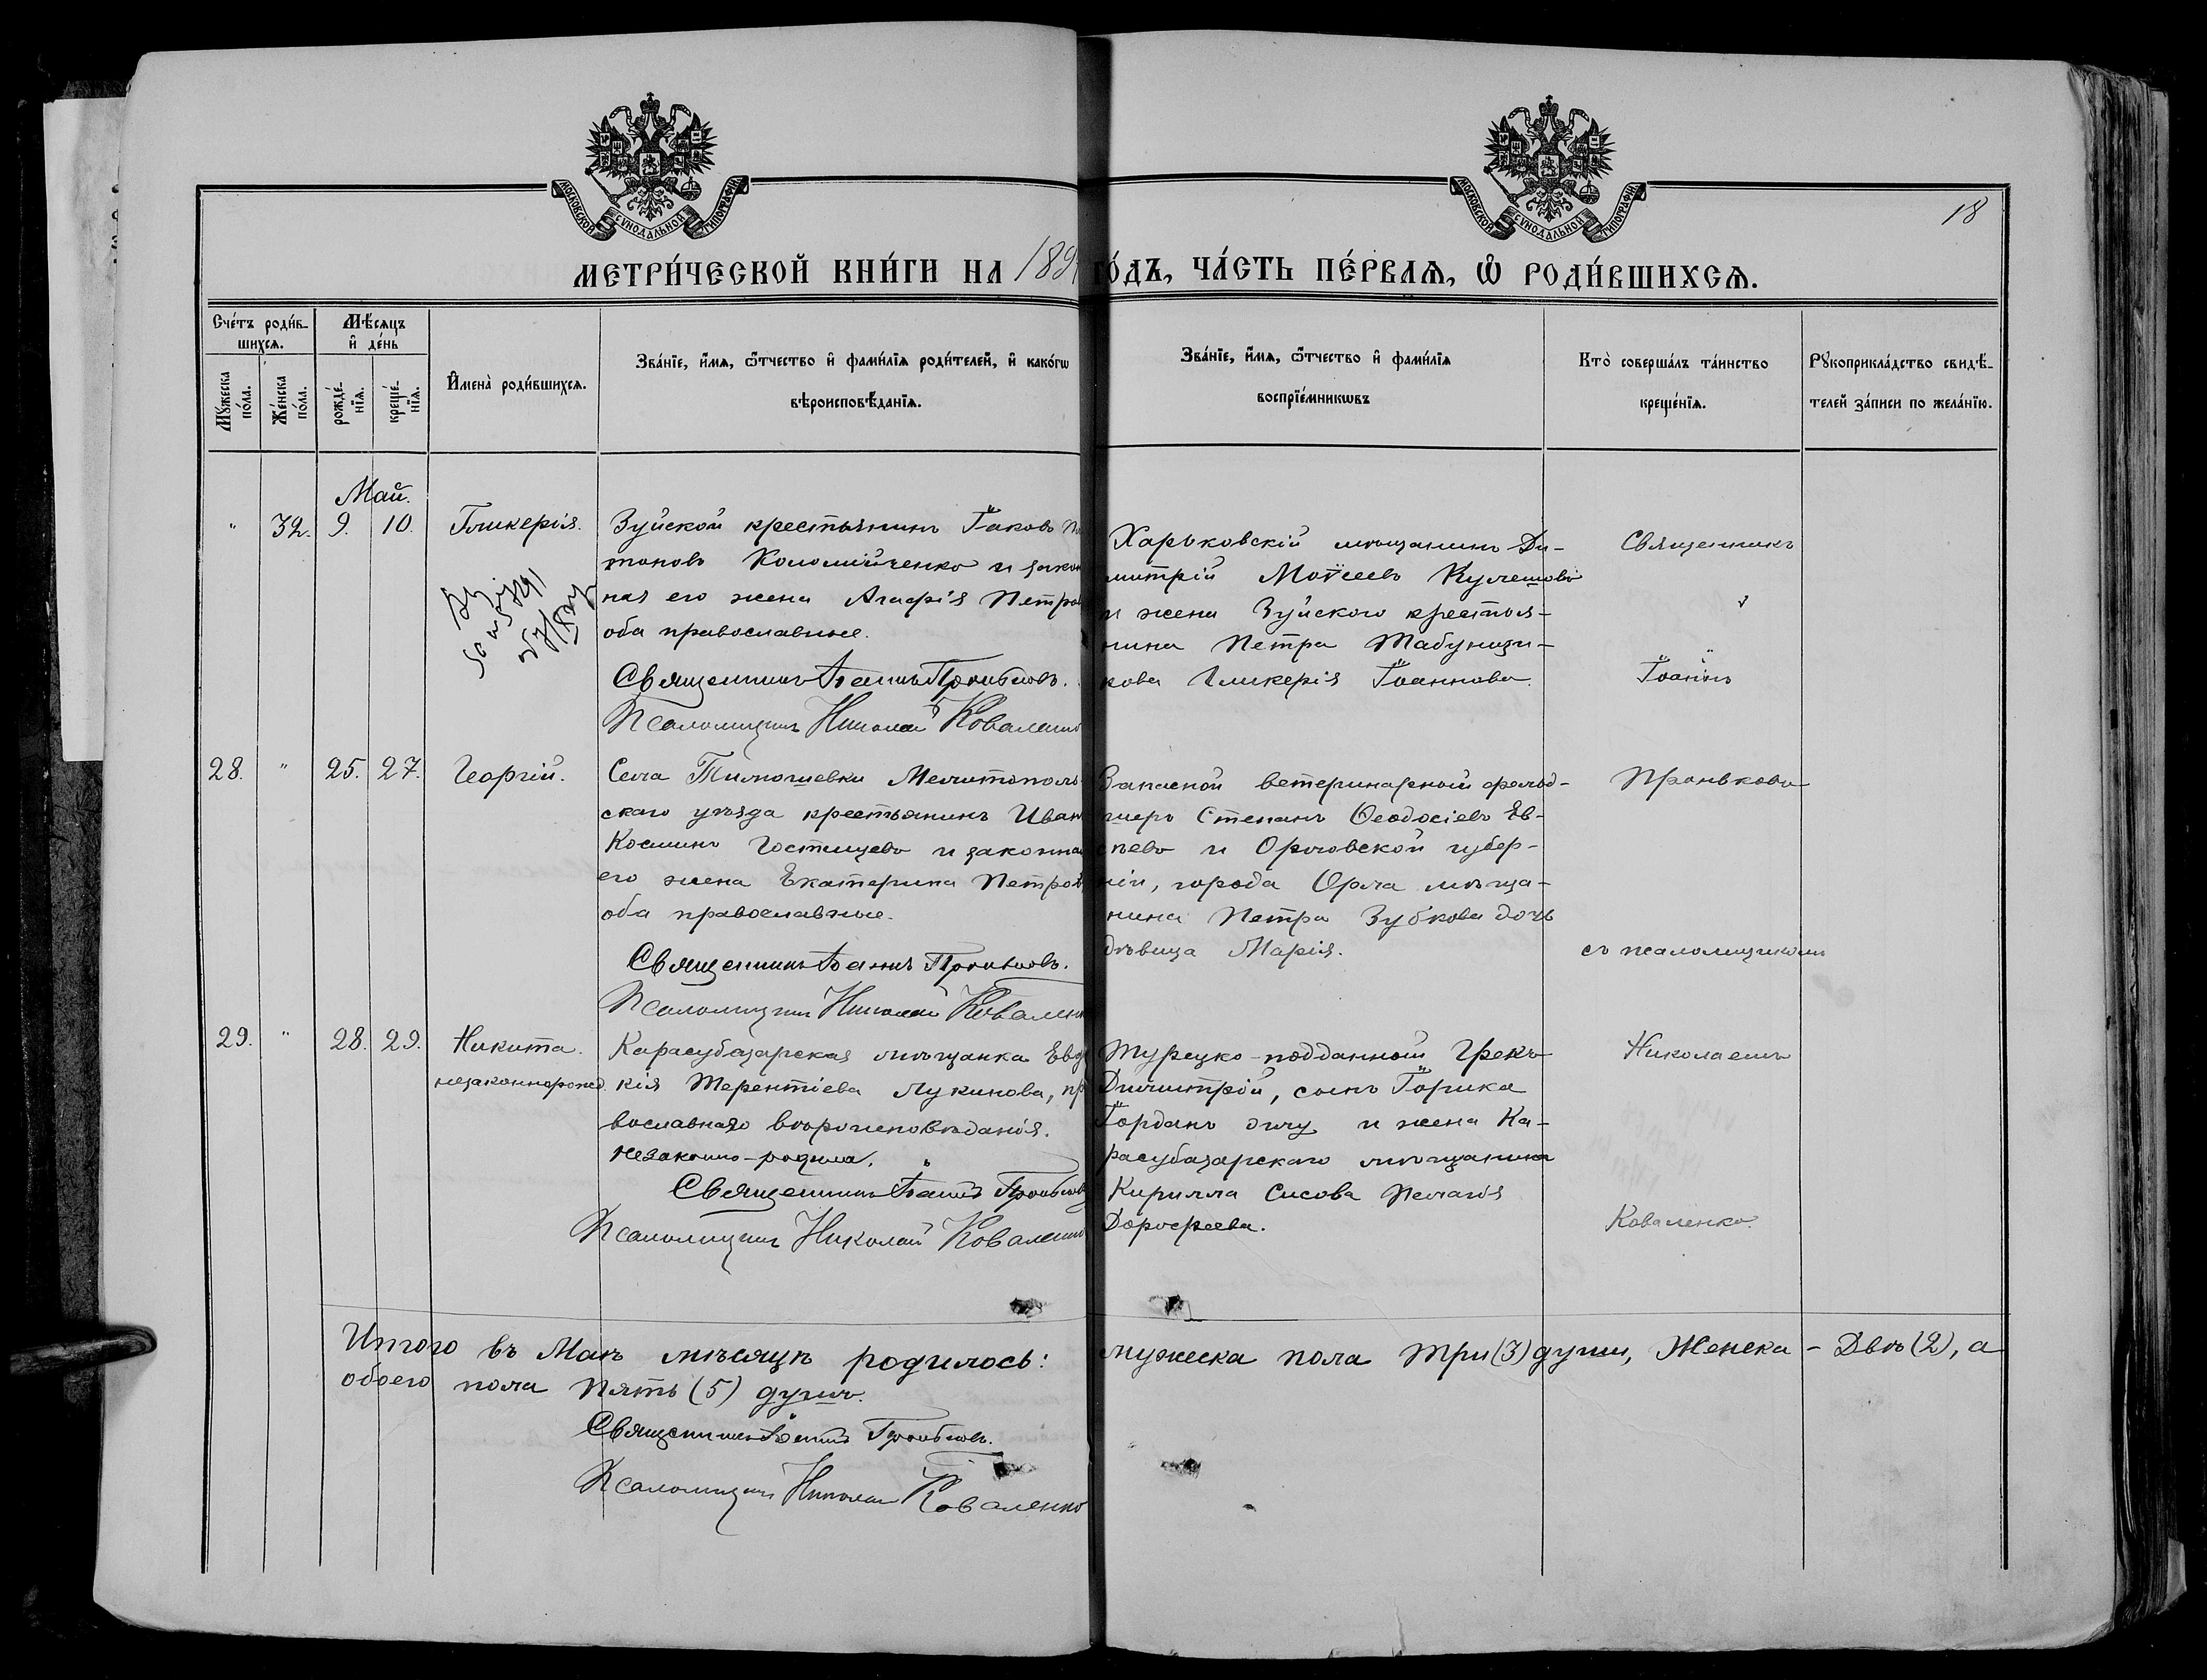 МОСКОВСКОЙ СѴНОДАЛЬНОЙ ТИПОГРАФІИ
МОСКОВСКОЙ СѴНОДАЛЬНОЙ ТИПОГРАФІИ
18
МЕТРИ́ЧЕСКОЙ КНИ́ГИ НА 189
ГО́ДЪ, ЧА́СТЬ ПЕ́РВАѦ, Ѽ РОДИ́ВШИХСѦ.
Сче́тъ роди́в-
шихсѧ.
Мꙋ́жеска по́ла.
Же́нска по́ла.
Мѣ́сѧцъ
и҆ де́нь
рожде́-нїѧ.
креще́-нїѧ.
И҆мена̀ роди́вшихсѧ.
Зва́нїе, и҆́мѧ, ѻ҆́тчество и҆ фами́лїѧ роди́телей, и҆ како́гѡ
вѣроисповѣ́данїѧ.
Зва́нїе, и҆́мѧ, ѻ҆́тчество и҆ фами́лїѧ
воспрїе́мникѡвъ
Кто̀ соверша́лъ та́инство
креще́нїѧ.
Рꙋкоприкла́дство свидѣ́-
телей за́писи по жела́нїю.
Май.
" 32. 9. 10. Гликерія.
Зуйской крестьянинъ Іаковъ
тоновъ Коломійченко и закон
ная его жена Агафія Петро
оба православные.
Священникъ Іоаннъ Проньковъ.
Псаломщикъ Николай Коваленко
Харьковскій мѣщанинъ Ди-
митрій Моѵсеевъ Кулешовъ
и жена Зуйского крестья-
нина Петра Табунщи-
кова Гликерія Іоаннова.
Священникъ
Іоаннъ
28. " 25. 27. Георгій.
Села Тимошевки Мелитополь-
скаго уѣзда крестьянинъ Иван
Косминъ Гостищевъ и законна
его жена Екатерина Петров
оба православные.
Священникъ Іоаннъ Проньковъ.
Псаломщикъ Николай Ковален
Запасной ветеринарный фельд-
шеръ Степанъ Ѳеодосіевъ Ев-
сѣевъ и Орловской губер-
ніи, города Орла мѣща-
нина Петра Зубкова дочь
дѣвица Марія.
Проньковъ
съ псаломщикомъ
29. " 28. 29. Никита.
незаконнорожд.
Карасубазарская мѣщанка Евдо
кія Терентіева Лукинова, пр
вославнаго вѣроисповѣданія.
незаконно-родила.
Священникъ Іоаннъ Проньков
Псаломщикъ Николай Коваленко
Турецко-подданный Грекъ
Димитрій, сынъ Іорика
Іорданъ оглу и жена Ка-
расубазарскаго мѣщанина
Кирилла Сисова Пелагія
Дорофеева.
Николаемъ
Коваленко.
Итого въ Маѣ мѣсяцѣ родилось: мужеска пола Три (3) души, Женска - Двѣ (2), а
обоего пола Пять (5) душъ.
Священникъ Іоаннъ Проньковъ.
Псаломщикъ Николай Коваленко